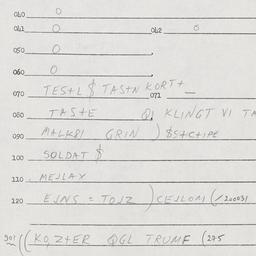 040 0
041 0 042 0
050 0
060 0
070 TESTL $ TASTN KORT+_ 071
080 TASTE KLINGT VI TA
090 MALKRI GRIN ) $S+C+IPE
100 SOLDAT $
110 MEJLAY
120 EJNS = TOJZ ) CEJLOMI (/200031
901 (( KO,Z+ER QGL TRUMF (275